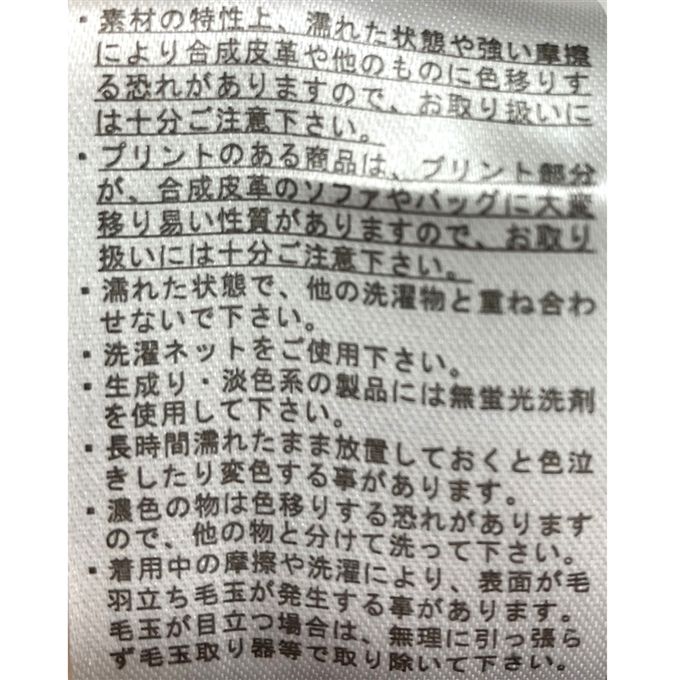 ・素材の特性上、濡れた状態や強い摩擦
により合成皮革や他のものに色移りす
る恐れがありますので、お取り扱いに
は十分ご注意下さい。
・プリントのある商品は、プリント部分
が、合成皮革のソファやバッグに大変
移り易い性質がありますので、お取り
扱いには十分ご注意下さい。
・濡れた状態で、他の洗濯物と重ね合わ
せないで下さい。
・洗濯ネットをご使用下さい。
・生成り・淡色系の製品には無蛍光洗剤
を使用して下さい。
・長時間濡れたまま放置しておくと色泣
きしたり変色する事があります。
・濃色の物は色移りする恐れがあります
ので、他の物と分けて洗って下さい。
・着用中の摩擦や洗濯により、表面が毛
羽立ち毛玉が発生する事があります。
毛玉が目立つ場合は、無理に引っ張ら
ず毛玉取り器等で取り除いて下さい。